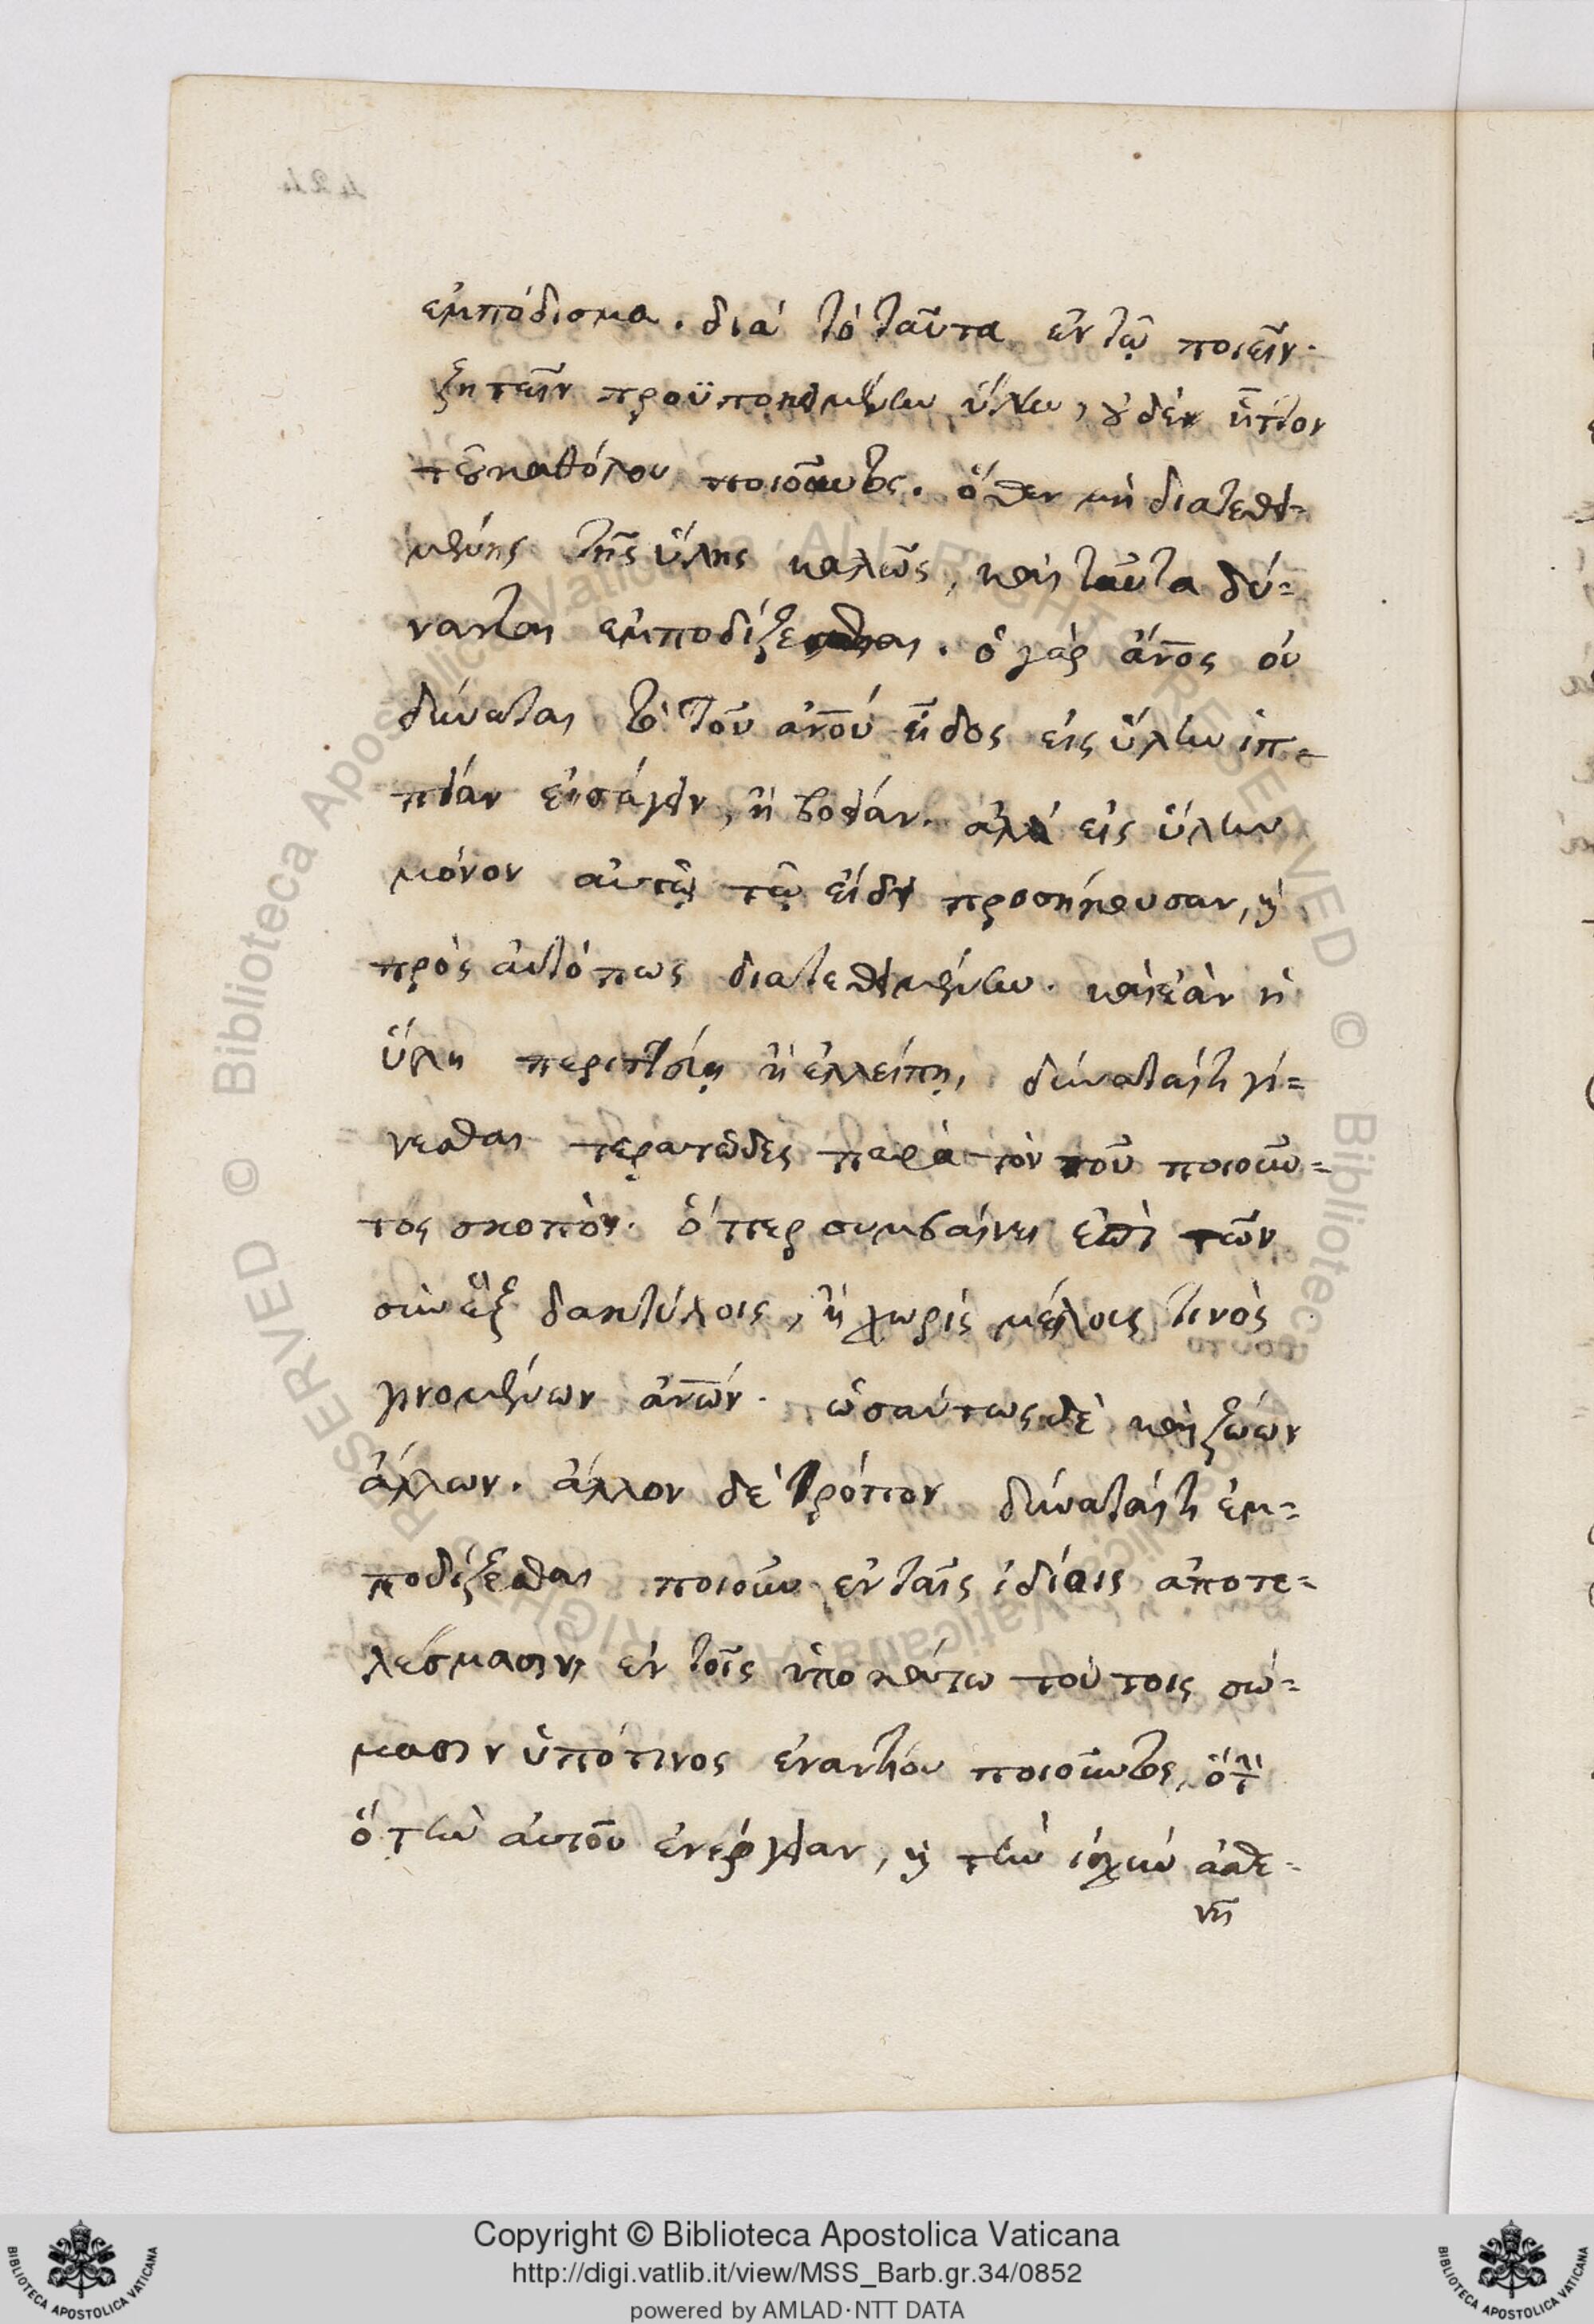 ἐμπόδισμα. διὰ τὸ ταῦτα ἐν τῷ ποιεῖν.
ζητεῖν προϋποκειμένην ὕλην, οὐδὲν ἧττον
τοῦ καθόλου ποιοῦντος. ὅθεν μὴ διατεθει-
μένης τῆς ὕλης καλῶς, καὶ ταῦτα δύ-
νανται ἐμποδίζεσθαι. ὁ γὰρ ἄνος οὐ
δύναται τὸ τοῦ ἀνοῦ εἶδος εἰς ὕλην ἱπ-
πείαν εἰσάγειν, ἢ βοείαν. ἀλλὰ εἰς ὕλην
μόνον αὐτῷ τῷ εἴδει προσήκουσαν, καὶ
πρὸς αὐτό πως διατεθειμένην. καὶ ἐὰν ἡ
ὕλη περιττεύῃ ἢ ἐλλείπῃ, δύναταί τι γί-
νεσθαι τερατῶδες παρὰ τὸν τοῦ ποιοῦν-
τος σκοπὸν. ὅπερ συμβαίνει ἐπὶ τῶν
σὺν ἓξ δακτύλοις, ἢ χωρὶς μέλους τινὸς
γινομένων ἀνῶν. ὡσαύτως δὲ καὶ ζώων
ἄλλων. ἄλλον δὲ τρόπον δύναταί τι ἐμ-
ποδίζεσθαι ποιοῦν ἐν ταῖς ἰδίαις ἀποτε-
λέσμασιν, ἐν τοῖς ὑποκάτω τούτοις σώ-
μασιν ὑπό τινος ἐναντίου ποιοῦντος, ὅτι
ὅτ τὴν αὐτοῦ ἐνέργειαν, καὶ τὴν ἰσχὺν ἀσθε-
νῆ
Copyright © Biblioteca Apostolica Vaticana
http://digi.vatlib.it/view/MSS_Barb.gr.34/0852
powered by AMLAD·NTT DATA